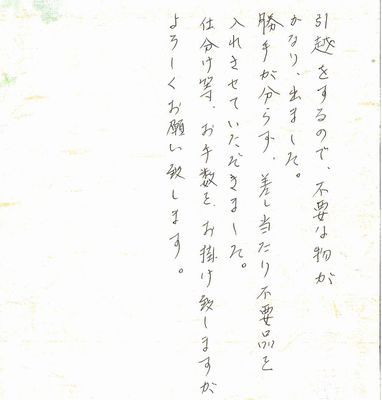 引越をするので、不要な物が
かなり、出ました。
勝手が分らず、差し当たり不要品を
入れさせていただきました。
仕分け等、お手数を、お掛け致しますが
よろしくお願い致します。